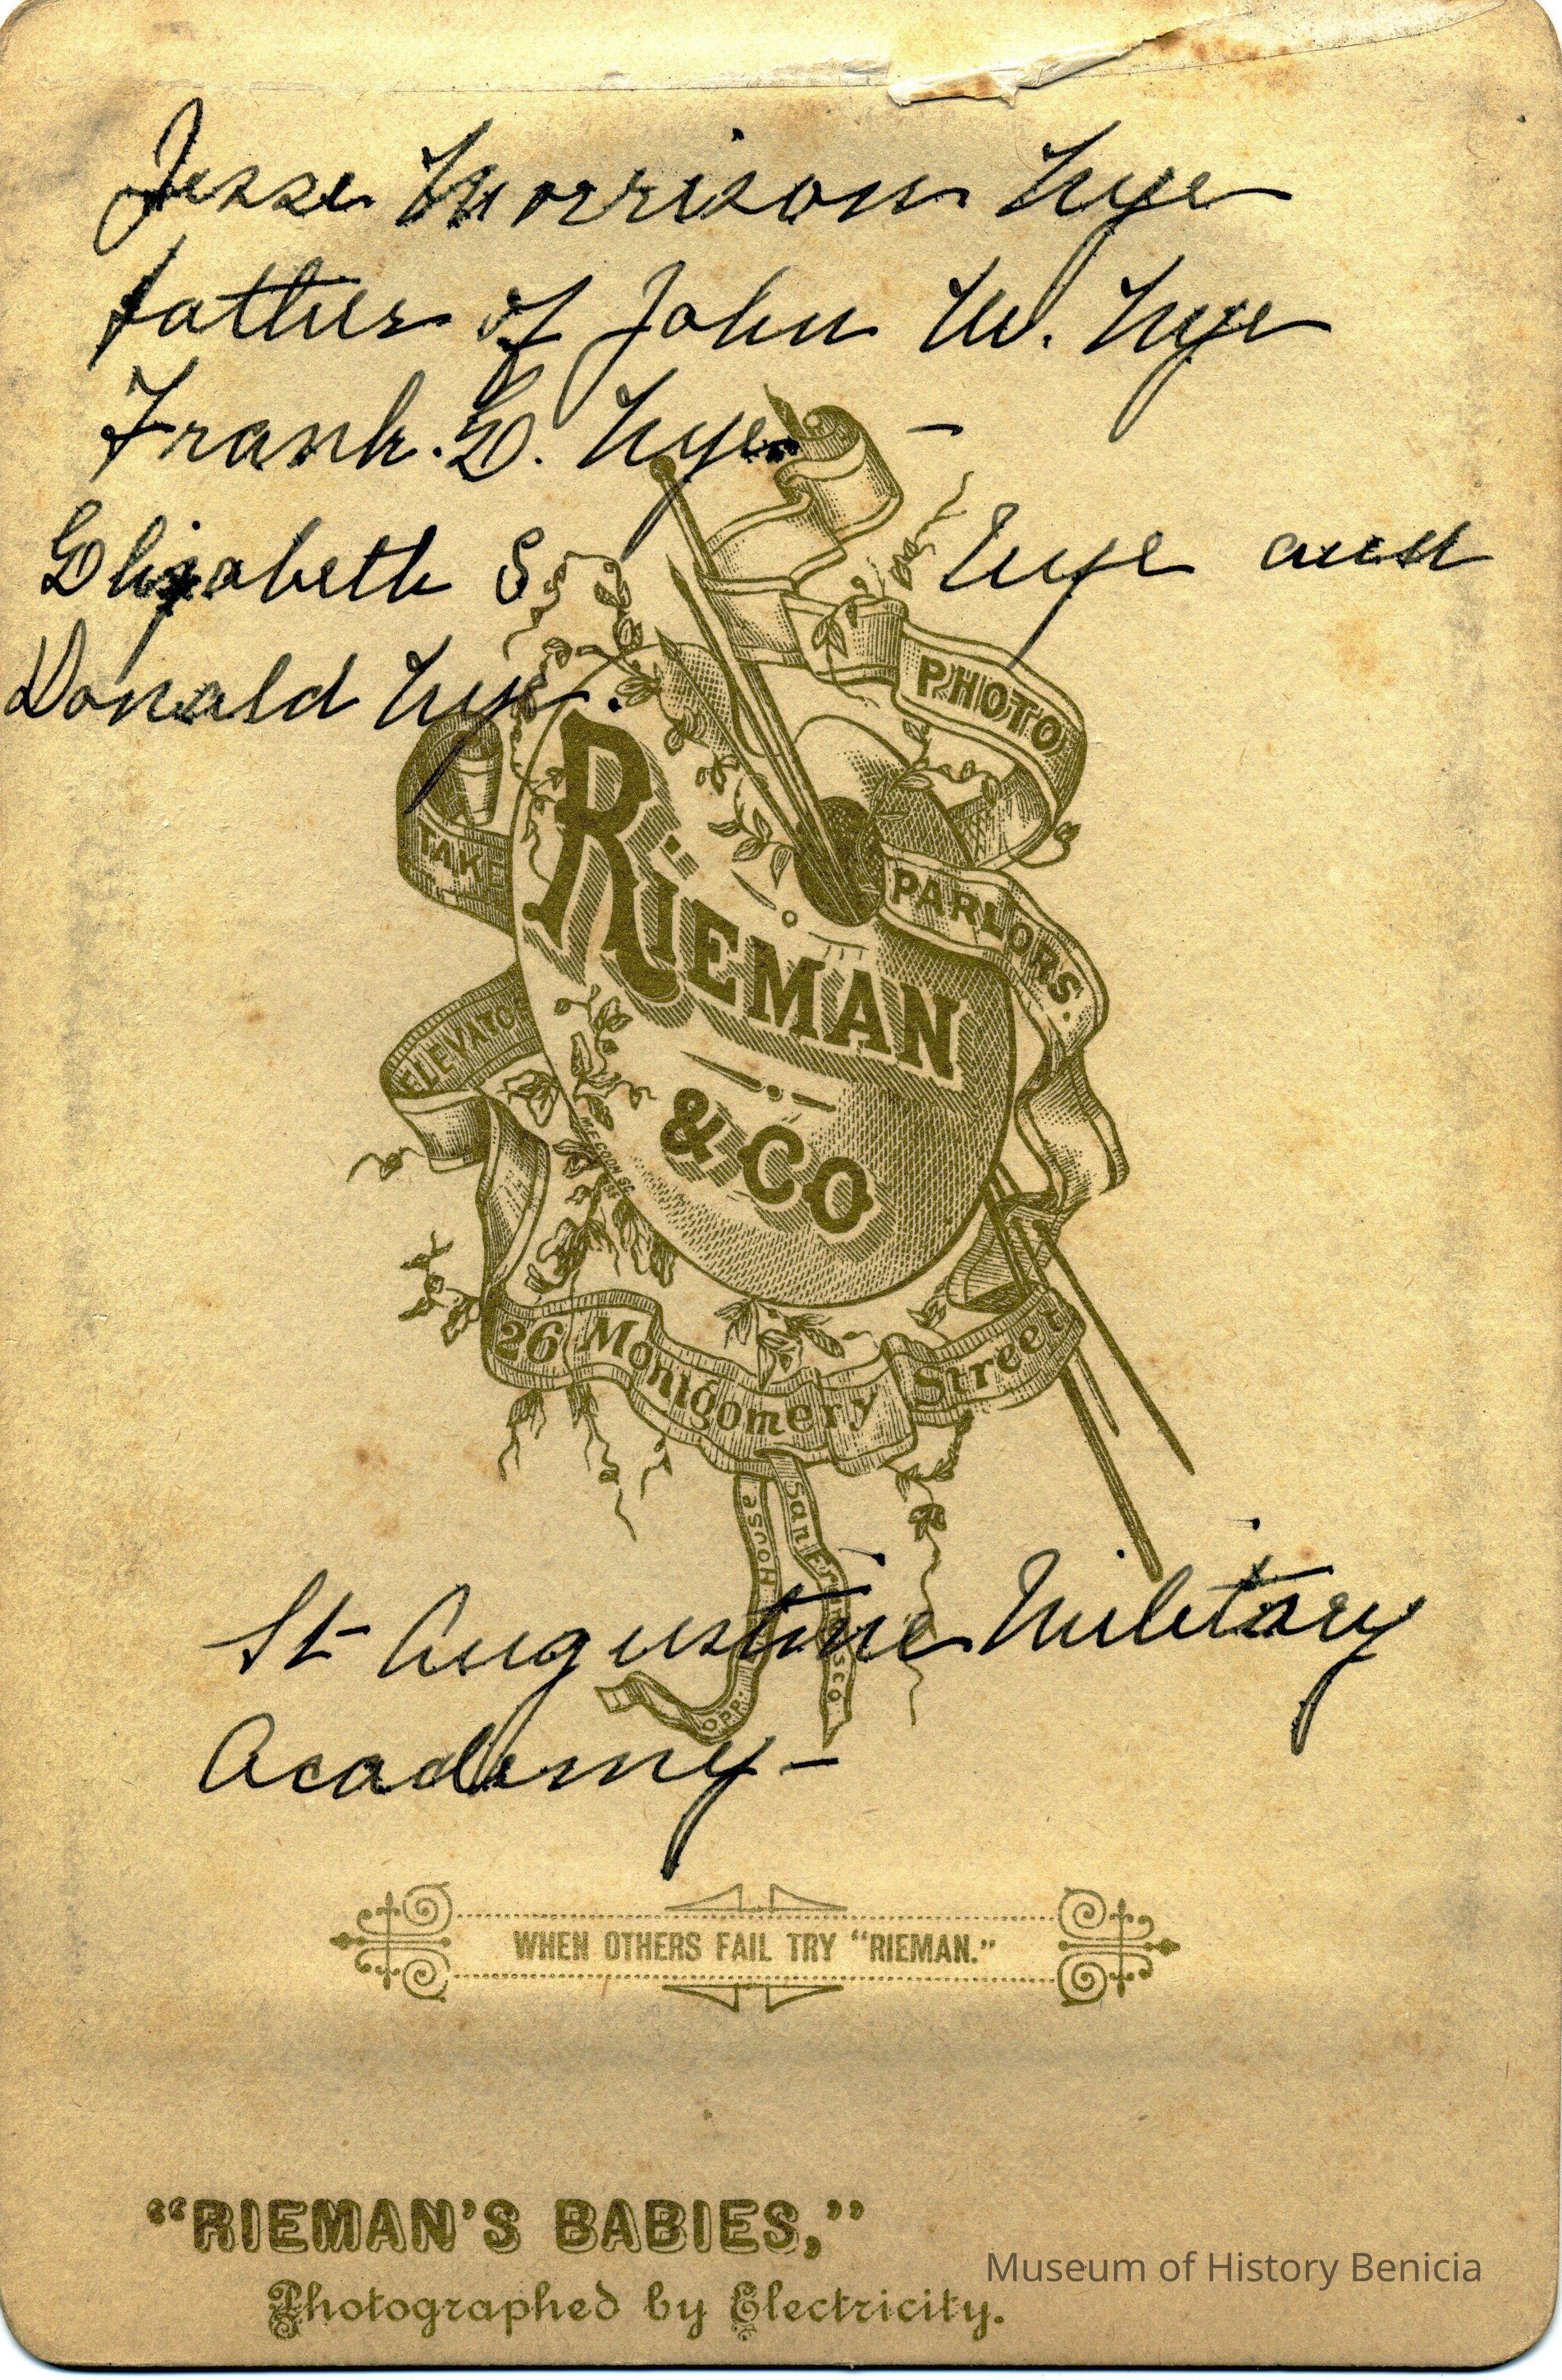 Jesse Morrison Nye
father of John W. Nye
Frank. E. Nye –
Elizabeth S Nye and
Donald Nye.
PHOTO
PARLORS.
TAKE
ELEVATOR
RIEMAN
& CO
26 Montgomery Street
San Francisco
OPP. House
St Augustine Military
Academy –
WHEN OTHERS FAIL TRY "RIEMAN."
"RIEMAN'S BABIES,"
Photographed by Electricity.
Museum of History Benicia